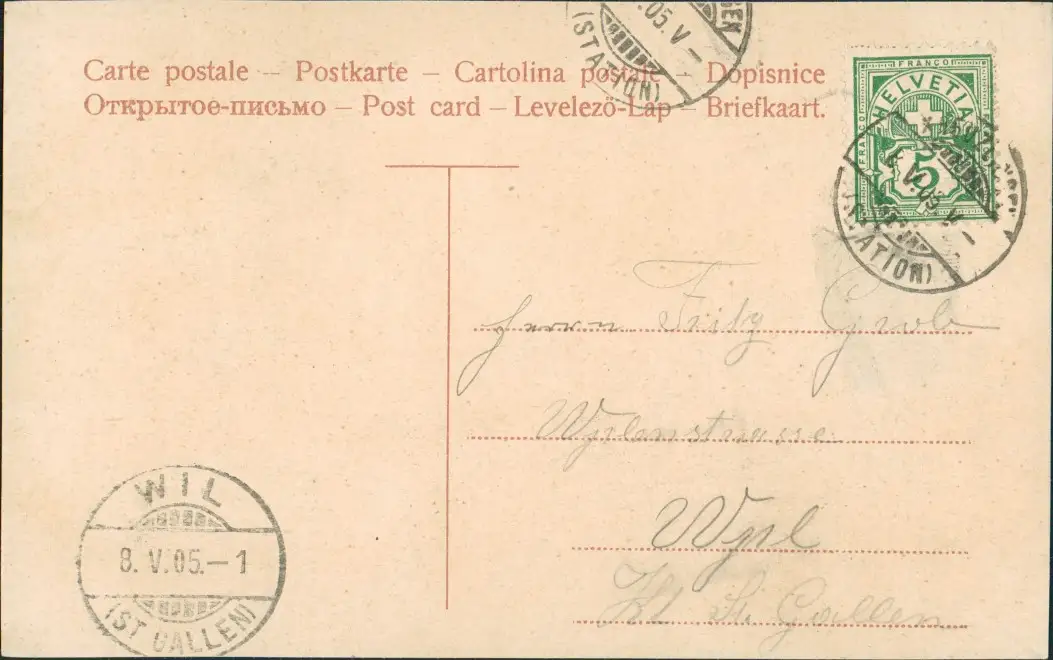 .05.V-1
(STATION)
Carte postale – Postkarte – Cartolina postale – Dopisnice
Открытое-письмо – Post card – Levelezö-Lap – Briefkaart.
FRANCO
HELVETIA
5
V.05
(STATION)
Herrn Fritz Grob
Wylenstrasse
Wyl
Kt St. Gallen
WIL
8. V.05.–1
(ST GALLEN)